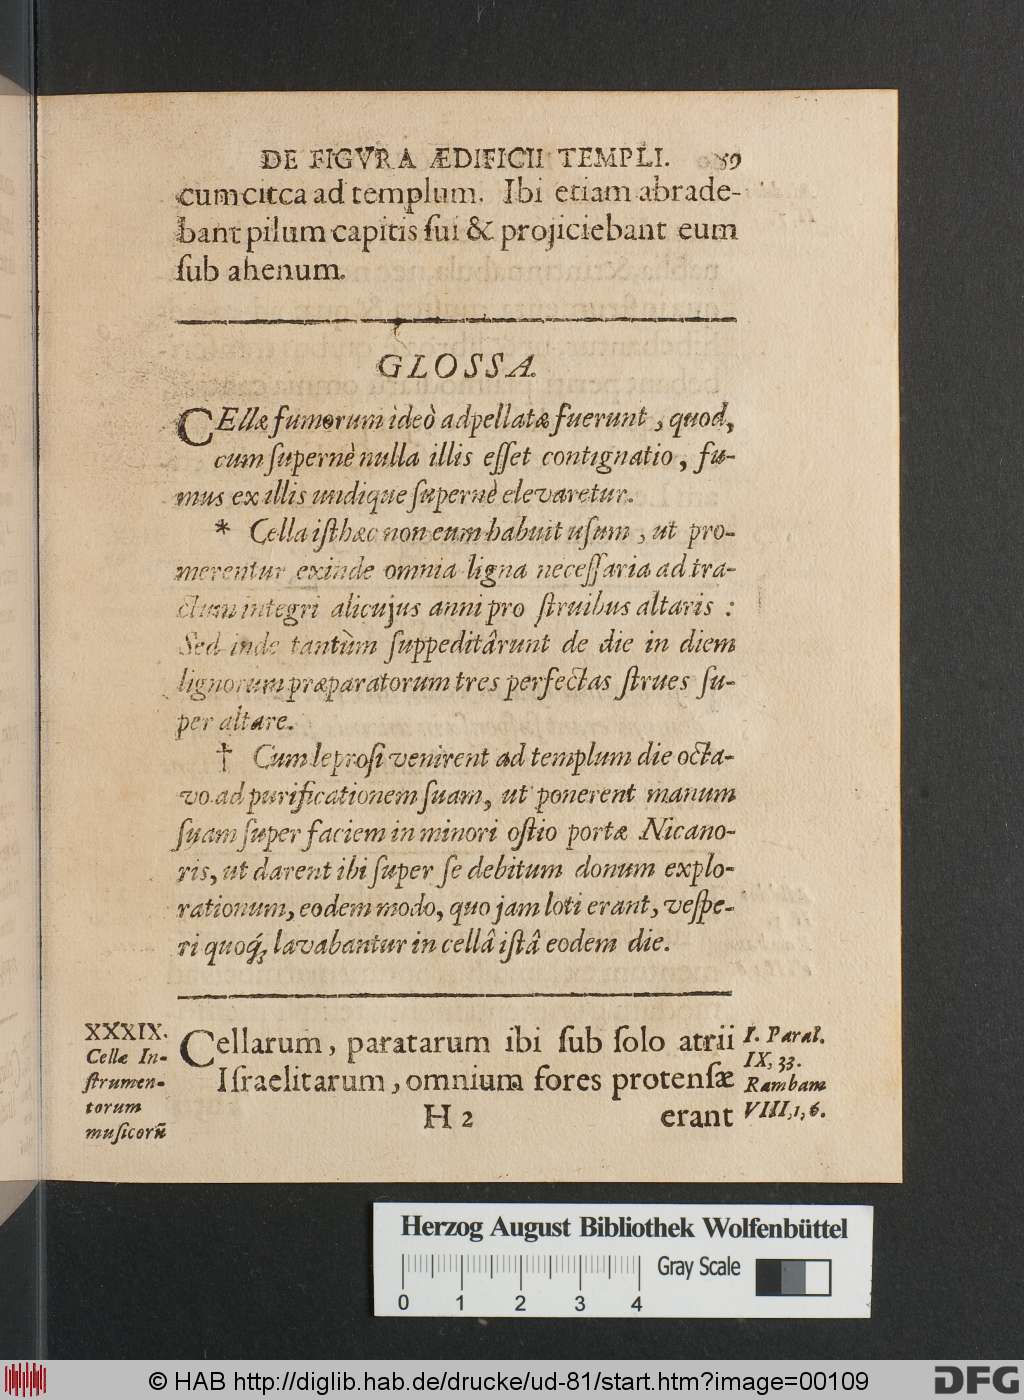 DE FIGVRA ÆDIFICII TEMPLI. 59
cum citca ad templum. Ibi etiam abrade-
bant pilum capitis ſui & projiciebant eum
ſub ahenum.
GLOSSA.
CEllæ fumorum ideò adpellatæ fuerunt, quod,
cum ſupernè nulla illis eſſet contignatio, fu-
mus ex illis undique ſupernè elevaretur.
* Cella iſthæc non eum habuit uſum, ut pro-
merentur exinde omnia ligna neceſſaria ad tra-
ctum integri alicujus anni pro ſtruibus altaris :
Sed inde tantùm ſuppeditârunt de die in diem
lignorum præparatorum tres perfectas ſtrues ſu-
per altare.
† Cum leproſi venirent ad templum die octa-
vo ad purificationem ſuam, ut ponerent manum
ſuam ſuper faciem in minori oſtio portæ Nicano-
ris, ut darent ibi ſuper ſe debitum donum explo-
rationum, eodem modo, quo jam loti erant, veſpe-
ri quoq́ꝫ lavabantur in cellâ iſtâ eodem die.
XXXIX.
Cellæ In-
ſtrumen-
torum
muſicorũ
Cellarum, paratarum ibi ſub ſolo atrii
Iſraelitarum, omnium fores protenſæ
I. Paral.
IX, 33.
Rambam
VIII, 1, 6.
H 2 erant
Herzog August Bibliothek Wolfenbüttel
Gray Scale
0 1 2 3 4
© HAB http://diglib.hab.de/drucke/ud-81/start.htm?image=00109
DFG